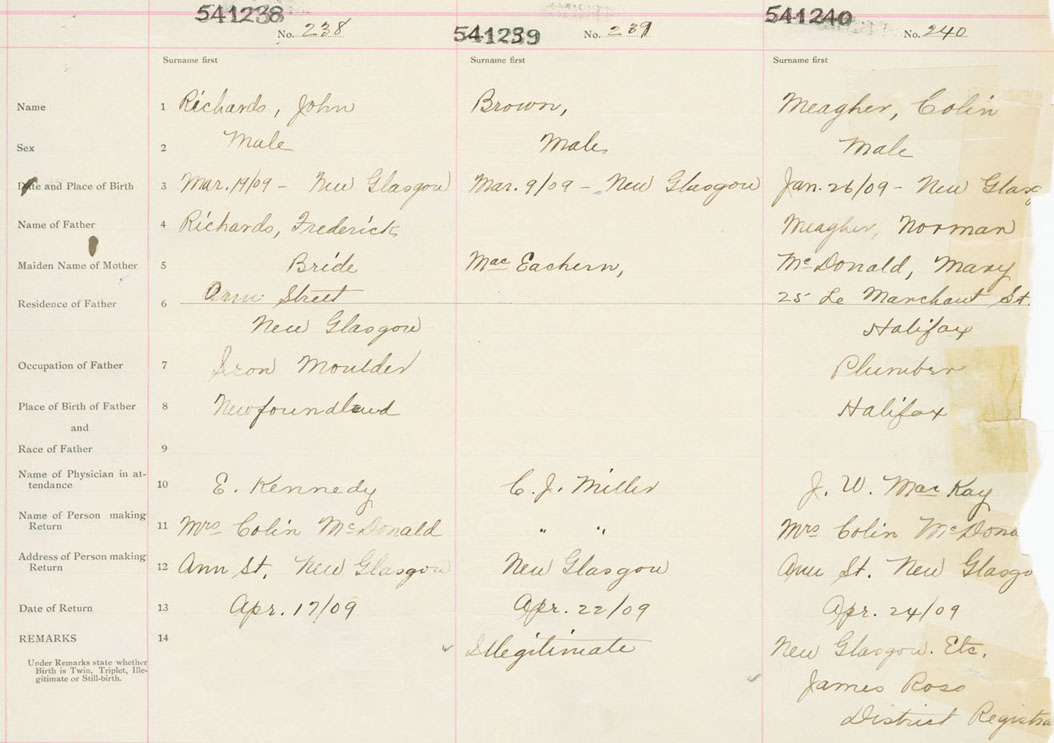 541238 541239 541240
No. 238 No. 239 No. 240
Surname first Surname first Surname first
Name 1 Richards, John Brown, Meagher, Colin
Sex 2 Male Male Male
Date and Place of Birth 3 Mar. 19/09 - New Glasgow Mar. 9/09 - New Glasgow Jan. 26/09 - New Glasg
Name of Father 4 Richards, Frederick Meagher, Norman
Maiden Name of Mother 5 Bride Mac Eachern, McDonald, Mary
Residence of Father 6 Ann Street 25 Le Marchant St.
New Glasgow Halifax
Occupation of Father 7 Iron Moulder Plumber
Place of Birth of Father 8 Newfoundland Halifax
and
Race of Father 9
Name of Physician in at-
tendance 10 E. Kennedy C. J. Miller J. W. MacKay
Name of Person making
Return 11 Mrs Colin McDonald " " Mrs Colin McDona
Address of Person making
Return 12 Ann St, New Glasgow New Glasgow Ann St. New Glasgo
Date of Return 13 Apr. 17/09 Apr. 22/09 Apr. 24/09
REMARKS 14 Illegitimate New Glasgow. Etc.
Under Remarks state whether
Birth is Twin, Triplet, Ille-
gitimate or Still-birth.
James Ross
District Registra